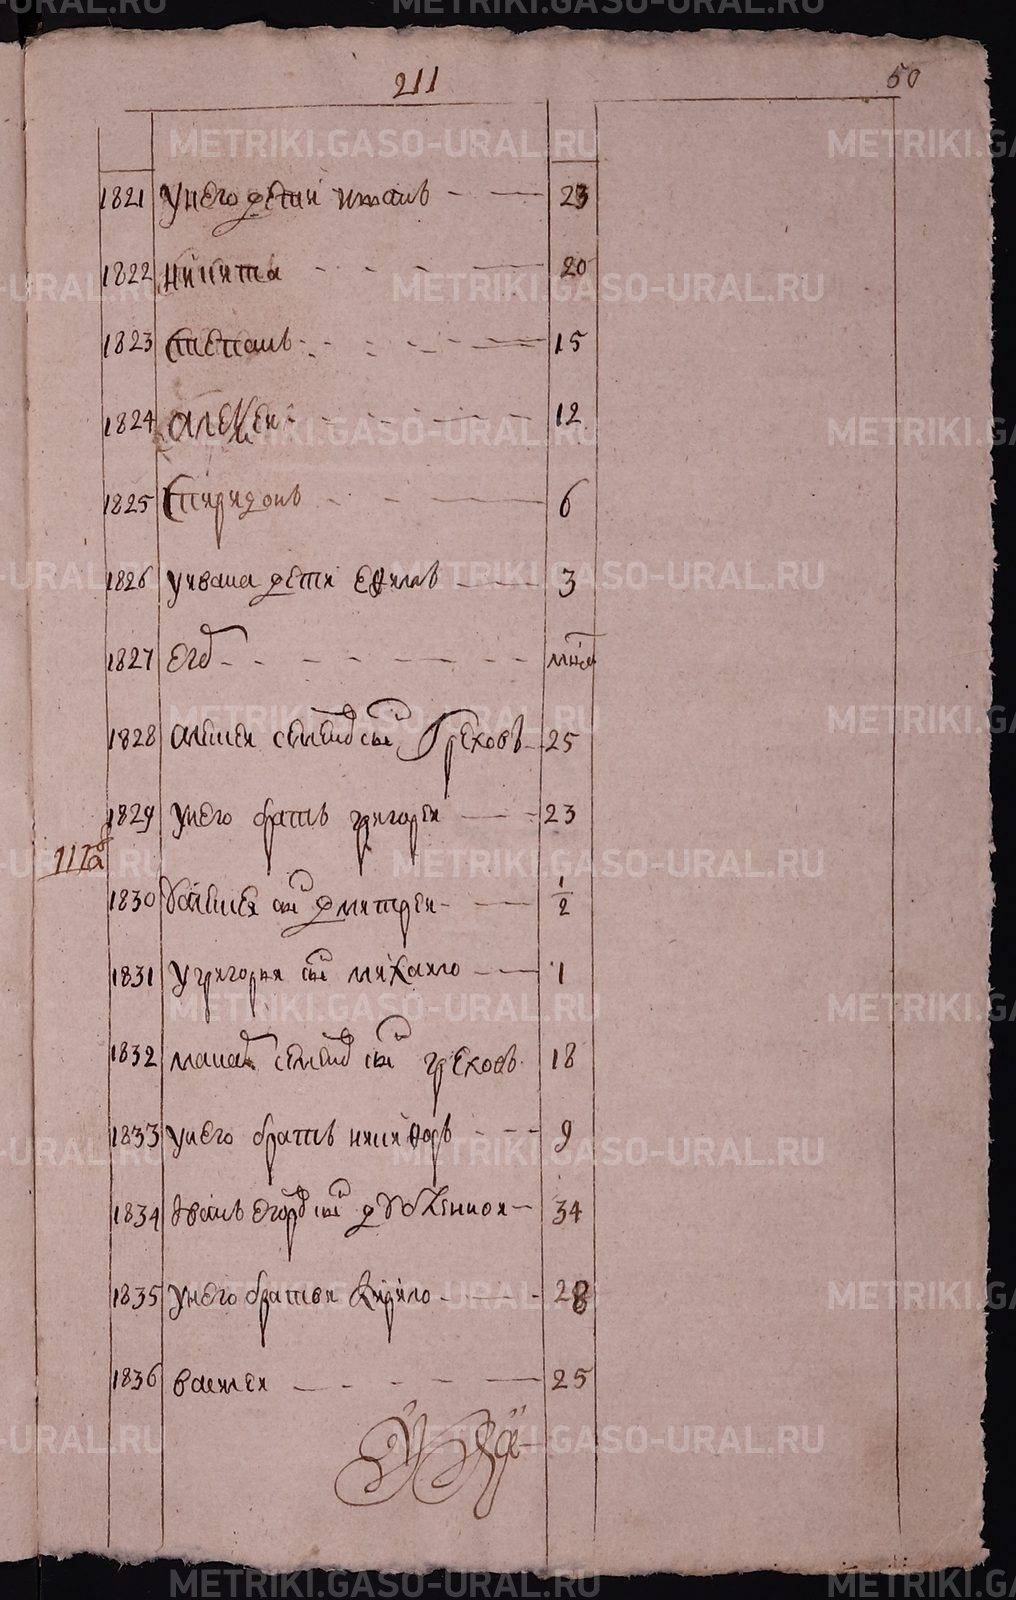 211
50
1821 Унего дети Иванъ 23
1822 Никита 20
1823 Степанъ 15
1824 Алексеи 12
1825 Спиридонъ 6
1826 Уивана дети 3
1827
1828 Алексеи Семенов снъ Греховъ 25
1829 Унего братъ григореи 23
1830 снъ дмитреи 1/2
1831 Угригорья снъ михаило 1
1832 Семенов снъ греховъ 18
1833 Унего братъ никифоръ 9
1834 Иванъ Егоров снъ 34
1835 Унего братья Кирило 28
1836 василеи 25
METRIKI.GASO-URAL.RU